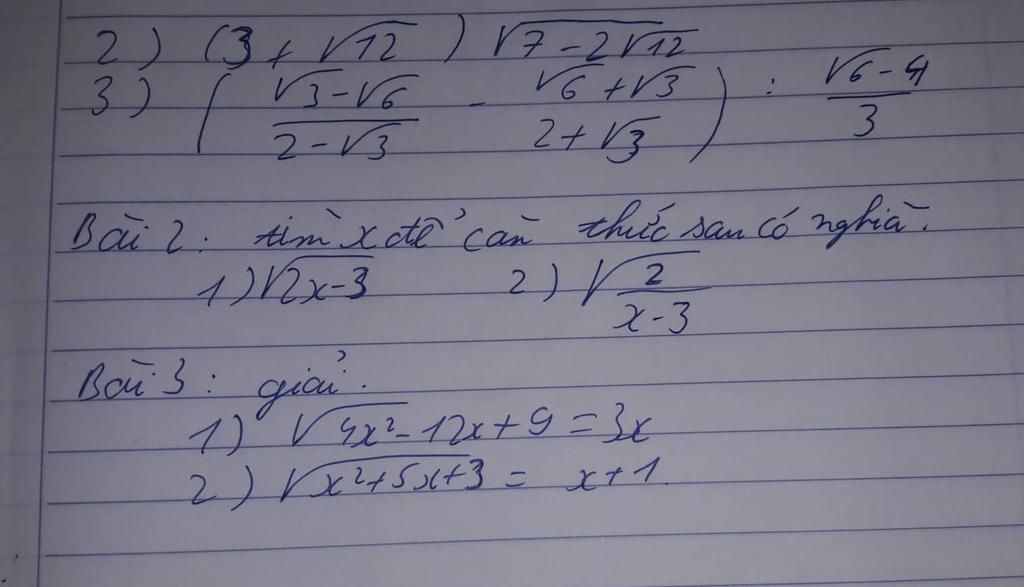 2) (3 + √12) √(7 - 2√12)
3) ( (√3 - √6)/(2 - √3) - (√6 + √3)/(2 + √3) ) : (√6 - 4)/3
Bài 2: tìm x để căn thức sau có nghiã.
1) √(2x - 3) 2) √(2/(x - 3))
Bài 3: giải.
1) √(4x² - 12x + 9) = 3x
2) √(x² + 5x + 3) = x + 1.